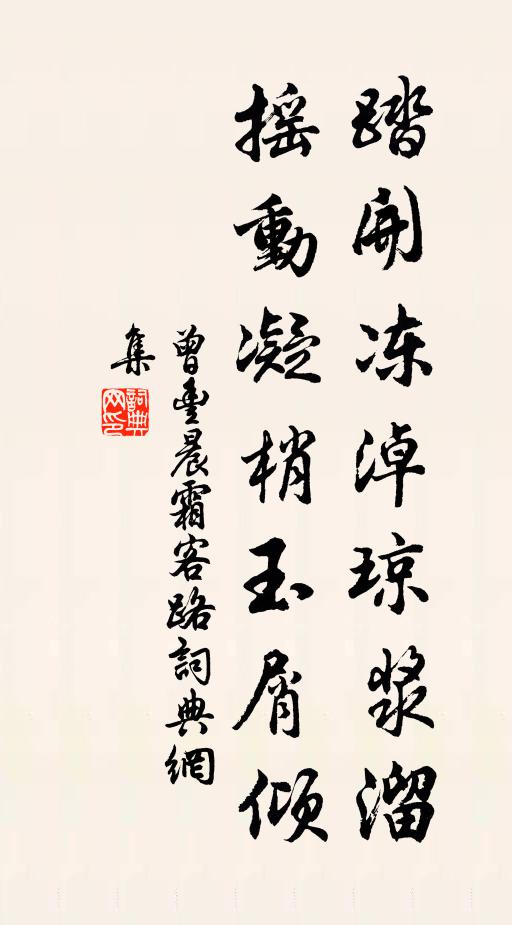 踏开冻淖琼浆溜
摇動凝梢玉屑倾
曾豊晨霜客路詞典網
集
詞典网印